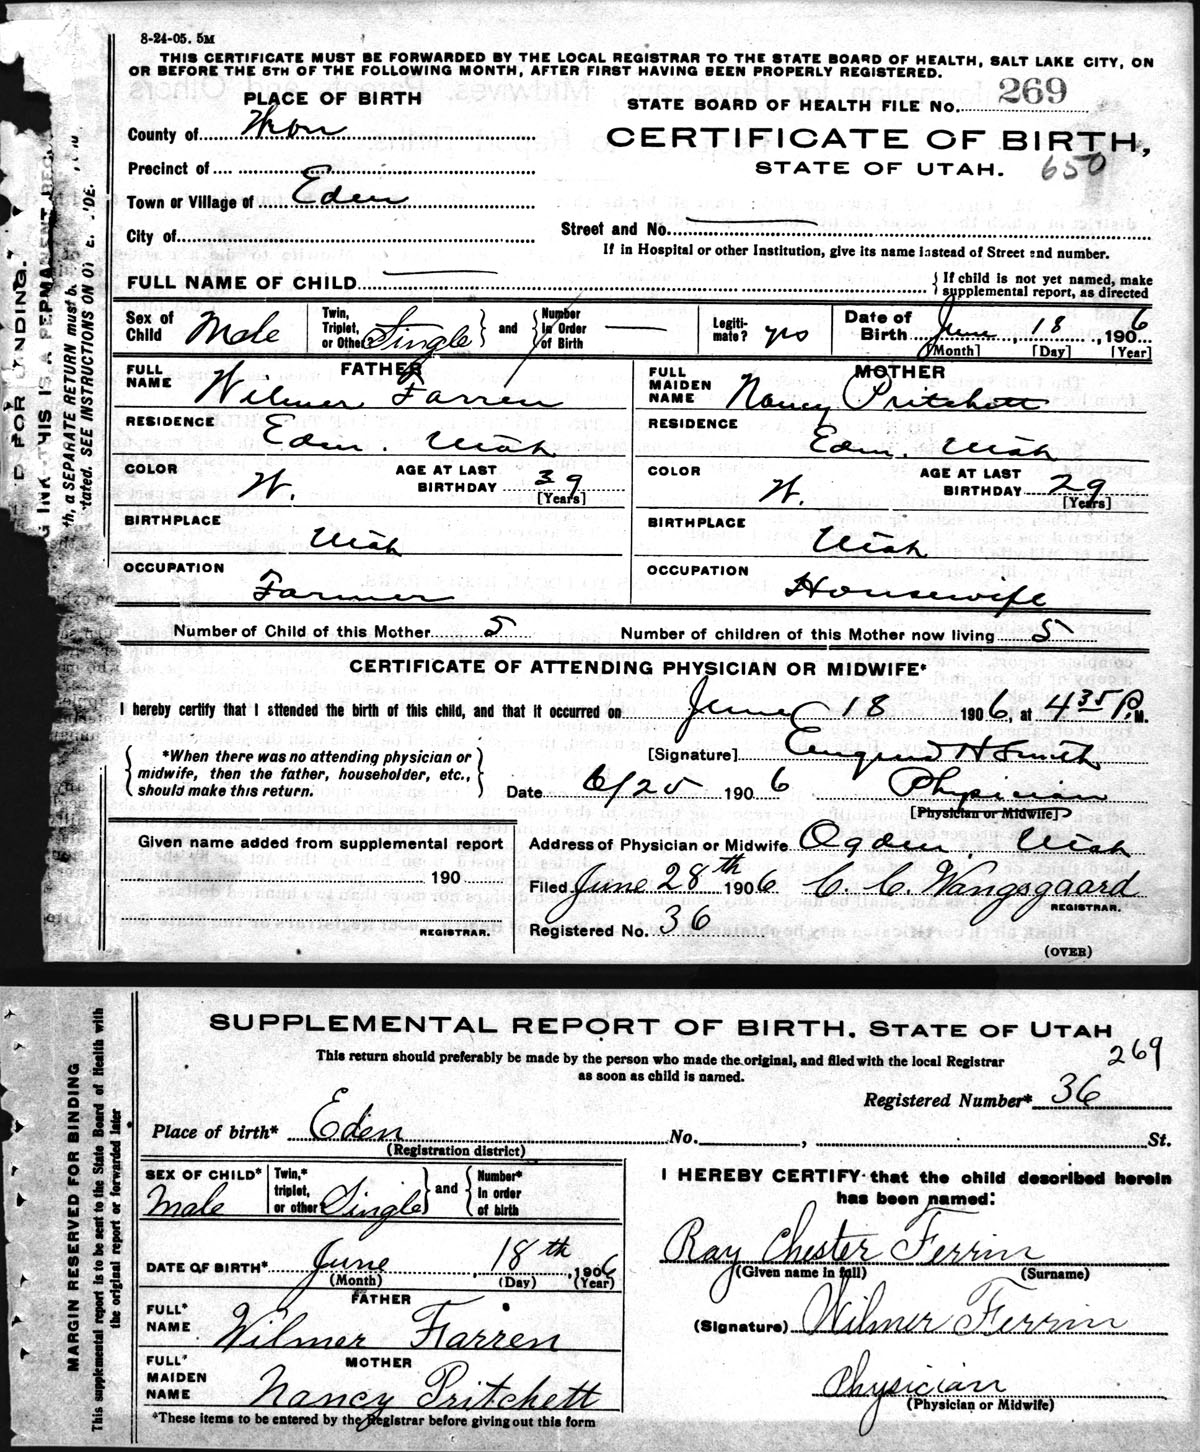 8-24-05. 5M
THIS CERTIFICATE MUST BE FORWARDED BY THE LOCAL REGISTRAR TO THE STATE BOARD OF HEALTH, SALT LAKE CITY, ON
OR BEFORE THE 5TH OF THE FOLLOWING MONTH, AFTER FIRST HAVING BEEN PROPERLY REGISTERED.
PLACE OF BIRTH
STATE BOARD OF HEALTH FILE No. 269
County of
CERTIFICATE OF BIRTH,
STATE OF UTAH. 650
Precinct of
Town or Village of Eden
Street and No.
City of
If in Hospital or other Institution, give its name instead of Street and number.
FULL NAME OF CHILD
{If child is not yet named, make
supplemental report, as directed
Sex of Child Male
Twin, Triplet, or Other Single } and { Number in Order of Birth
Legiti-mate? yes
Date of Birth June, 18, 1906
[Month] [Day] [Year]
FATHER
FULL NAME Wilmer Farren
MOTHER
FULL MAIDEN NAME Nancy Pritchett
RESIDENCE Eden. Utah
RESIDENCE Eden. Utah
COLOR W. AGE AT LAST BIRTHDAY 39 [Years]
COLOR W. AGE AT LAST BIRTHDAY 29 [Years]
BIRTHPLACE Utah
BIRTHPLACE Utah
OCCUPATION Farmer
OCCUPATION Housewife
Number of Child of this Mother 5 Number of children of this Mother now living 5
CERTIFICATE OF ATTENDING PHYSICIAN OR MIDWIFE*
I hereby certify that I attended the birth of this child, and that it occurred on June 18 1906, at 4 35 P.M.
{*When there was no attending physician or
midwife, then the father, householder, etc.,
should make this return.}
[Signature] H Smith
Date 6/25 1906 Physician
[Physician or Midwife]
Given name added from supplemental report
190
REGISTRAR.
Address of Physician or Midwife Ogden. Utah
Filed June 28th 1906 C. C. Wangsgaard
REGISTRAR.
Registered No. 36
(OVER)
SUPPLEMENTAL REPORT OF BIRTH, STATE OF UTAH
This return should preferably be made by the person who made the original, and filed with the local Registrar
as soon as child is named.
269
Registered Number* 36
Place of birth* Eden No. , St.
(Registration district)
SEX OF CHILD* Male
Twin,* triplet, or other Single } and { Number* in order of birth
DATE OF BIRTH* June, 18th, 1906
(Month) (Day) (Year)
FATHER
FULL* NAME Wilmer Farren
MOTHER
FULL* MAIDEN NAME Nancy Pritchett
*These items to be entered by the Registrar before giving out this form
I HEREBY CERTIFY that the child described herein
has been named:
Ray Chester Ferrin
(Given name in full) (Surname)
(Signature) Wilmer Ferrin
Physician
(Physician or Midwife)
MARGIN RESERVED FOR BINDING
This supplemental report is to be sent to the State Board of Health with
the original report or forwarded later